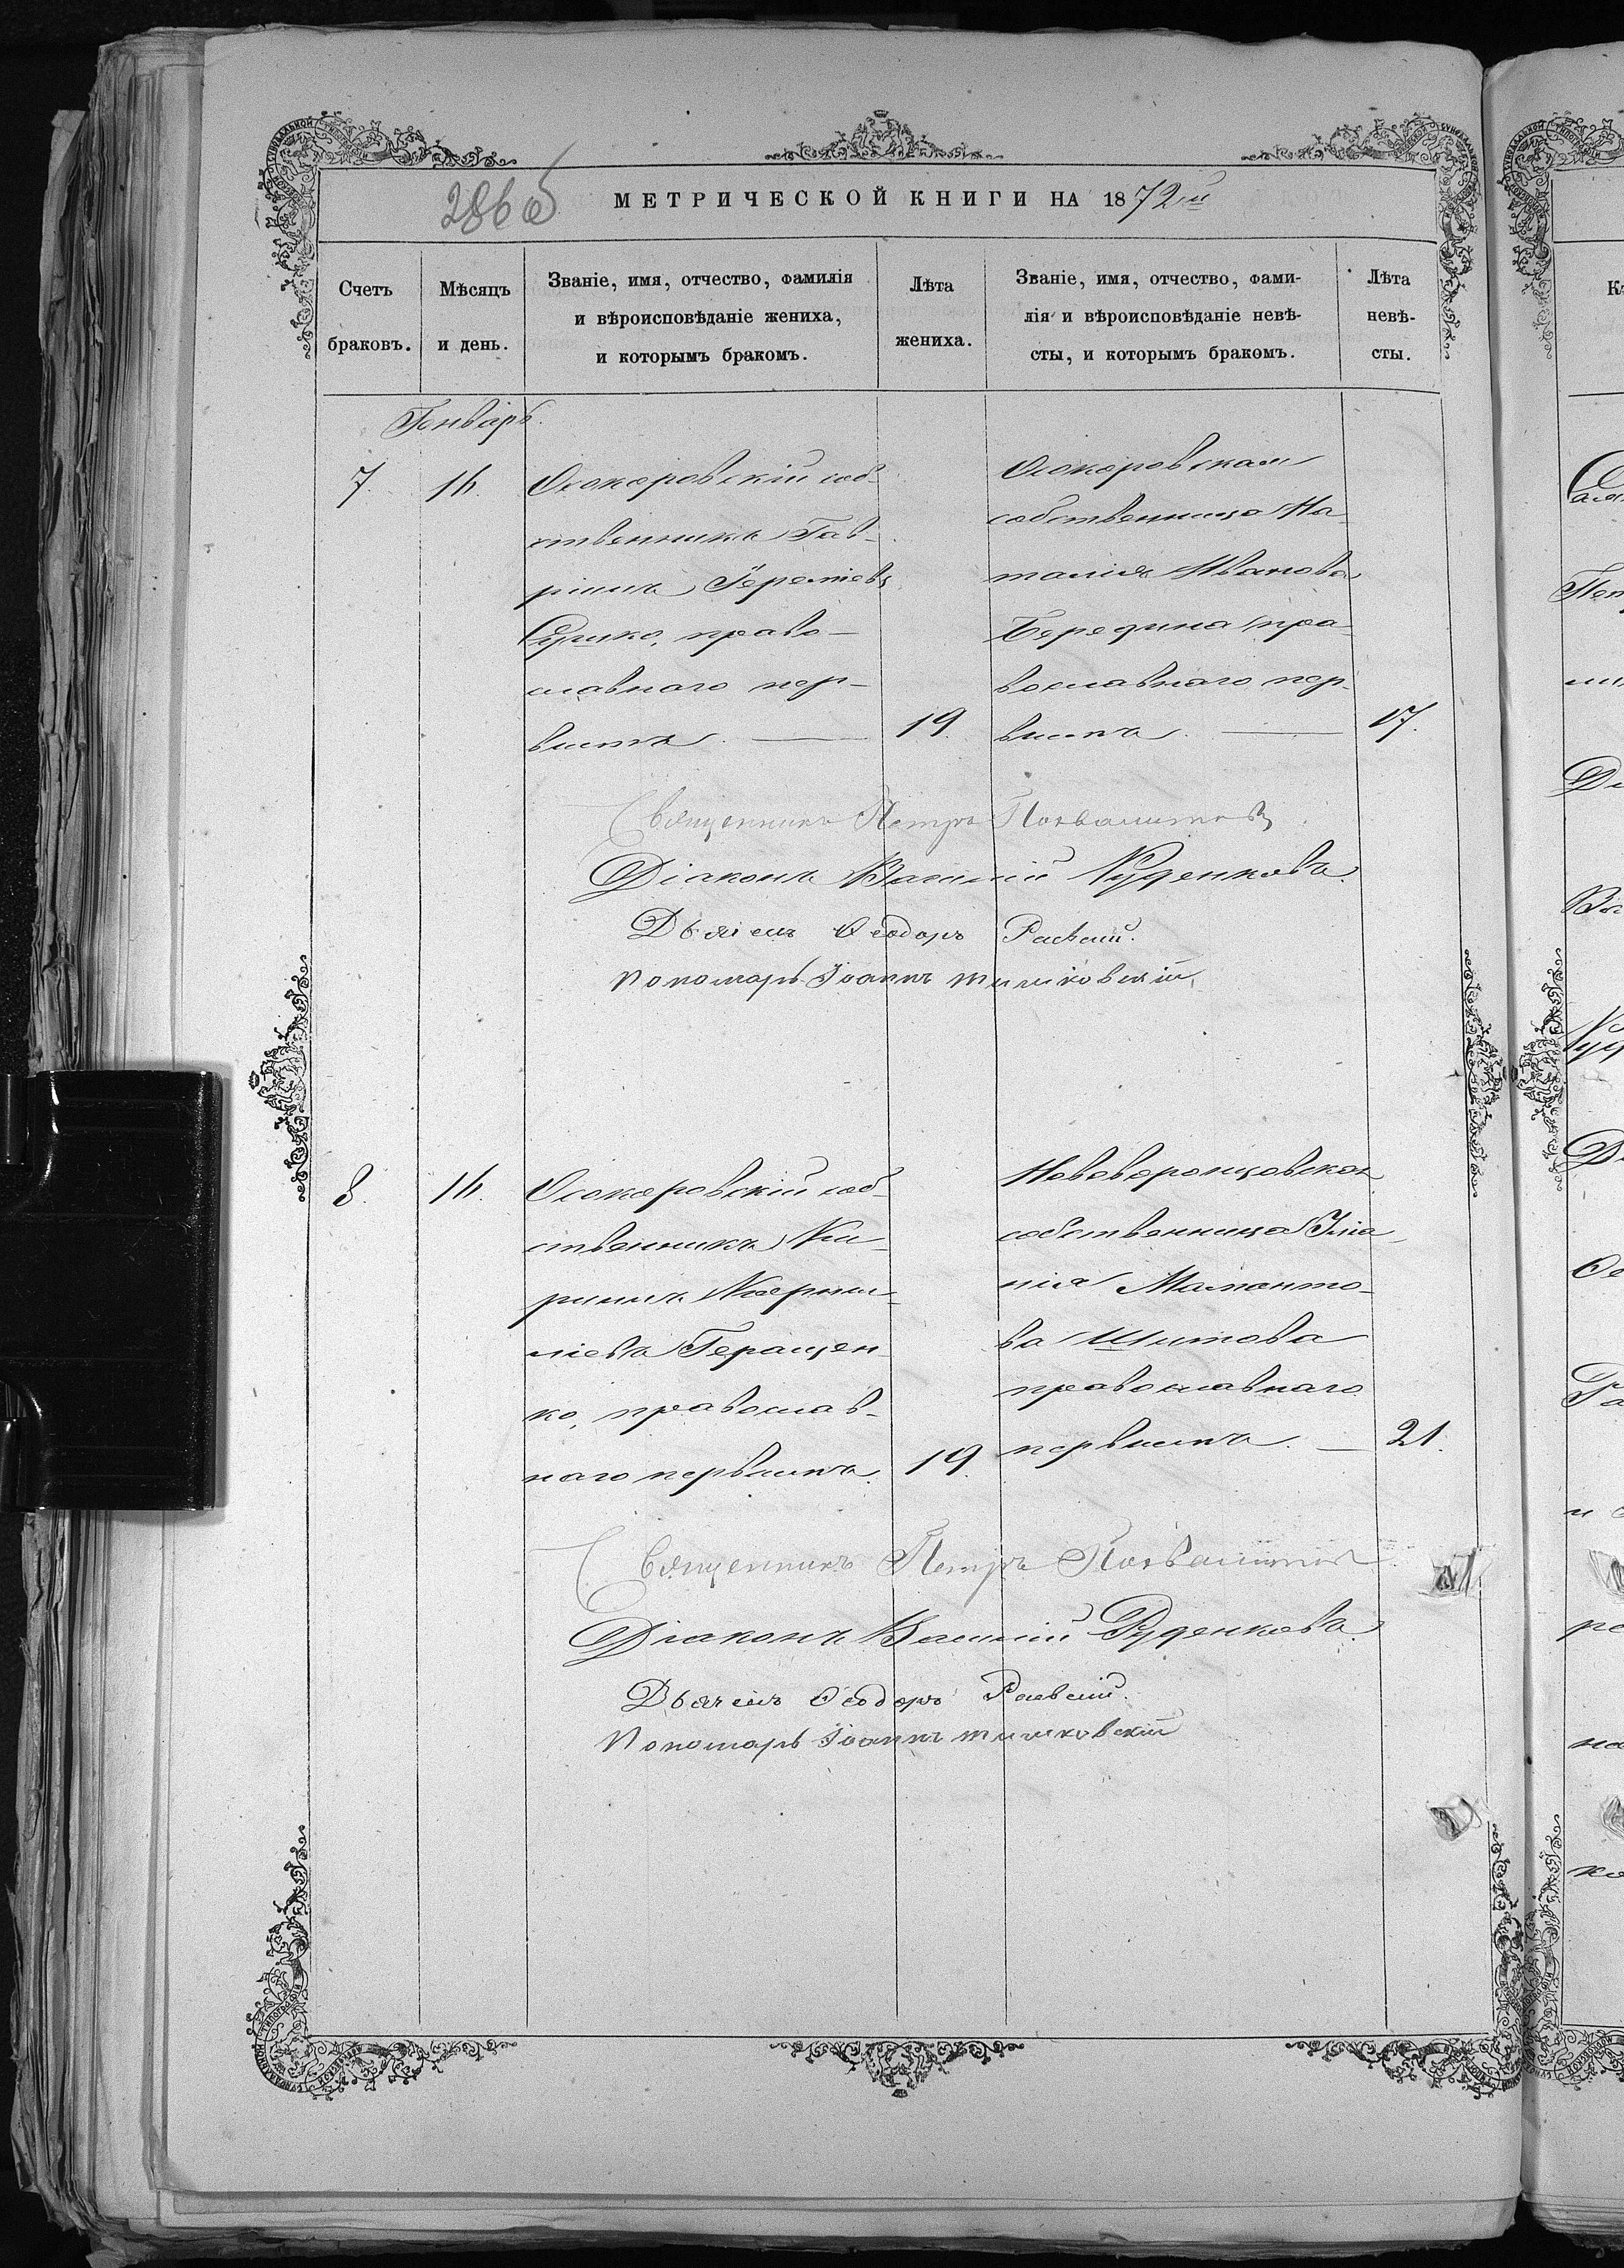 286 об
МЕТРИЧЕСКОЙ КНИГИ НА 1872й
Счетъ браковъ.
Мѣсяцъ и день.
Званіе, имя, отчество, фамилія
и вѣроисповѣданіе жениха,
и которымъ бракомъ.
Лѣта жениха.
Званіе, имя, отчество, фами-
лія и вѣроисповѣданіе невѣ-
сты, и которымъ бракомъ.
Лѣта невѣ-
сты.
Генварь.
7. 16.
Осокоровскій соб-
ственникъ Гав-
ріилъ Іереміевъ
право-
славнаго пер-
вымъ
19.
Осокоровская
собственница На-
талія Иванова
Середина пра-
вославнаго пер-
вымъ
17.
Священникъ Петръ
Діаконъ Василій Руденковъ.
Дьячекъ Ѳеодоръ Раевскій.
Пономарь Іоаннъ
8. 16.
Осокоровскій соб-
ственникъ Ки-
рилъ Корни-
ліевъ Геращен-
ко, православ-
наго первымъ
19.
Нововоронцовская
собственница Ули-
нія Мамонто-
ва Шитова
православнаго
первымъ.
21.
Священникъ Петръ
Діаконъ Василій Руденковъ.
Дьячекъ Ѳеодоръ Раевскій.
Пономарь Іоаннъ